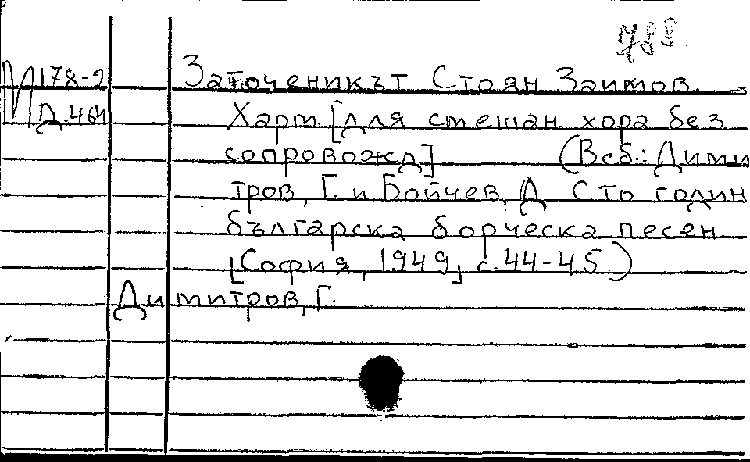 788
И 178-2 Заточеникът Стоян Заимов.
Д.464 Харм. [для смешан хора без
сопровожд] (В сб.: Дими
тров, Г. и Бойчев, А Сто годин
българска борческа песен
[София, 1949, с. 44-45)
Димитров, Г.